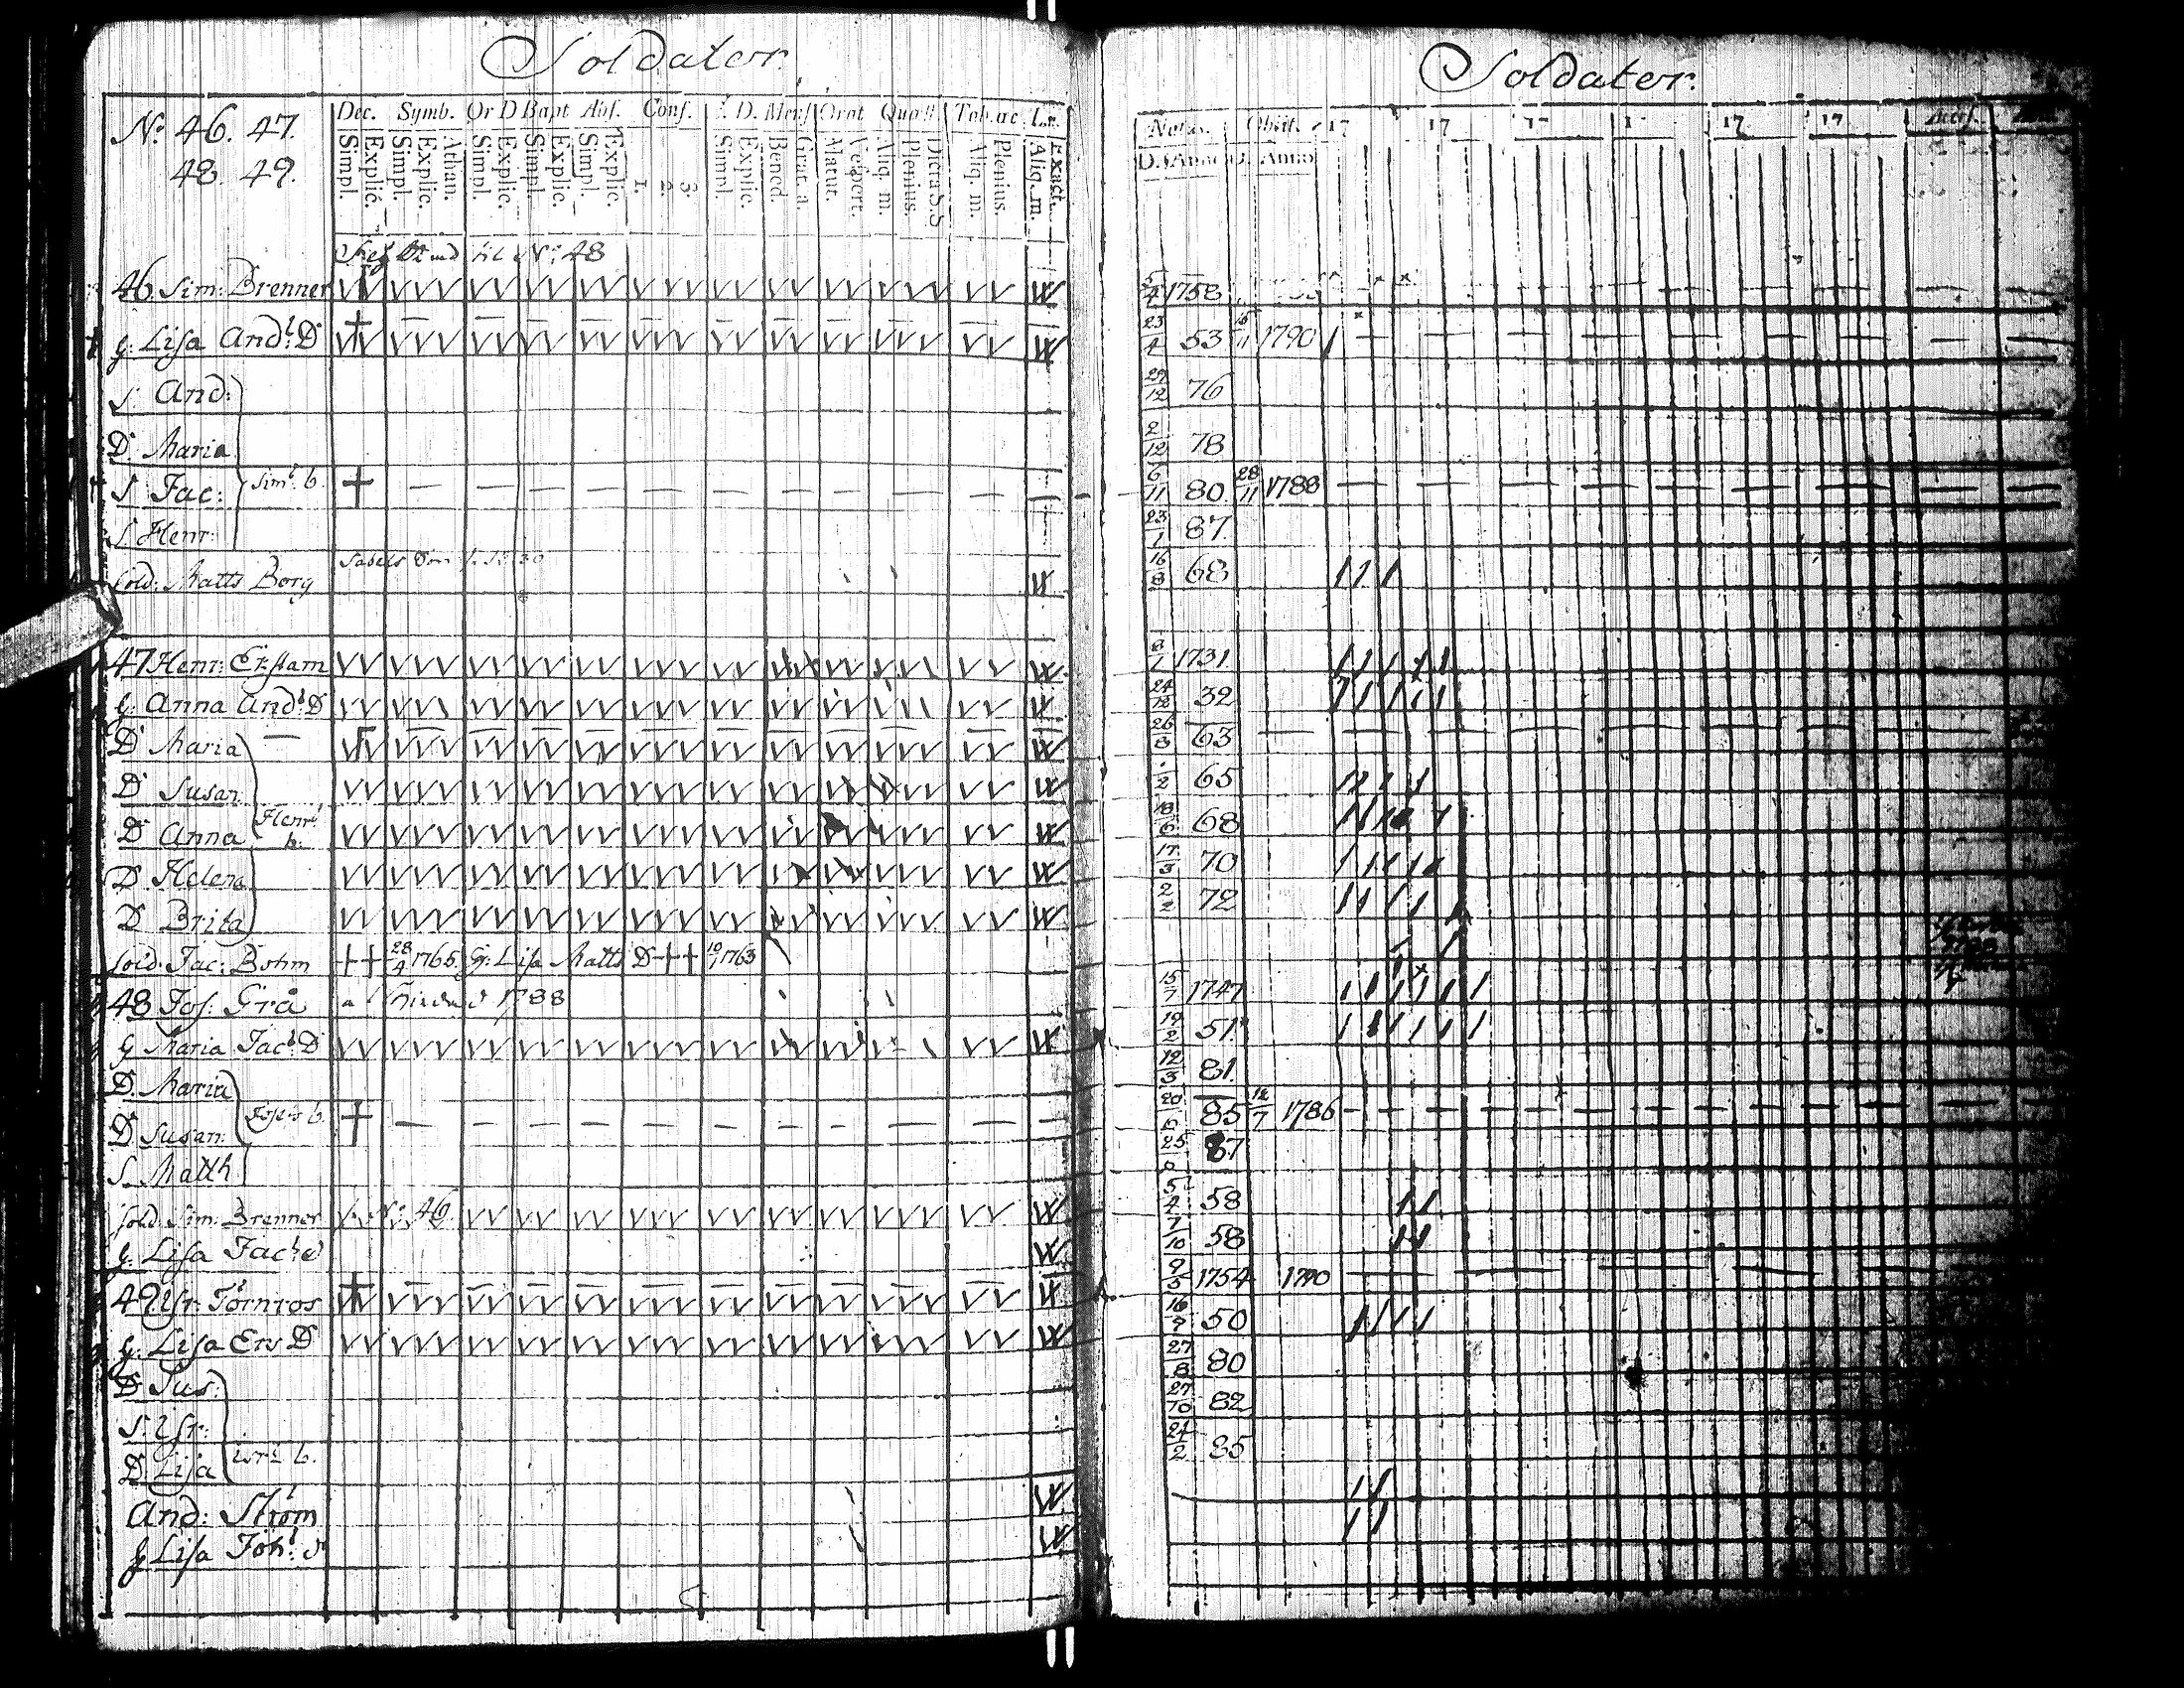 Soldater.
No: 46. 47.
48. 49.
Dec. Symb. Or D Bapt Abs. Conf. D. Mens Orat Quæst Tab. æc L.
Simpl. Explic. Simpl. Explic. Athan. Simpl. Explic. Simpl. Explic. Simpl. Explic. 1. 2. 3. Simpl. Explic. Bened. Grat. a. Matut. Vespert. Aliq. m. Plenius. Dicta S.S Aliq. m. Plenius. Aliq. m. Exact.
til No: 48
46 Sim: Brenner
g: Lisa And: D
S. And:
D. Maria
S. Jac: Sim: b.
S. Henr:
Sold: Matts Borg
47 Henr: Ekstam
g: Anna And: D
D. Maria
D. Susan
D. Anna Henr: b.
D. Helena
D. Brita
Sold: Jac: Bohm ++ 28/4 1765. g: Lisa Matts D ++ 10/1 1763
48 Jos: Grå 1788
g Maria Jac: D
D. Maria
D. Susan: Josephs b.
S. Matth
Sold. Sim: Brenner No: 46.
g: Lisa Jac: d
49 Isr: Törnros
g: Lisa Ers D
D. Sus:
S. Isr:
D. Lisa Isr: b.
And: Ström
g Lisa Joh: d
Soldater.
Natus. Obiit. 17 17 17 17 17 17
D. Anno D. Anno
5/4 1758
23 53 15/11 1790
29/12 76
2/12 78
6/11 80 28/11 1788
23/1 87
16/8 68
1731
24/12 32
26/8 63
65
18/6 68
17/3 70
2/2 72
15/7 1747
19/2 51
12/3 81
20 85 12/7 1786
25 87
5/4 58
7/10 58
9/5 1754 1790
16 50
27/8 80
27/10 82
24/2 85